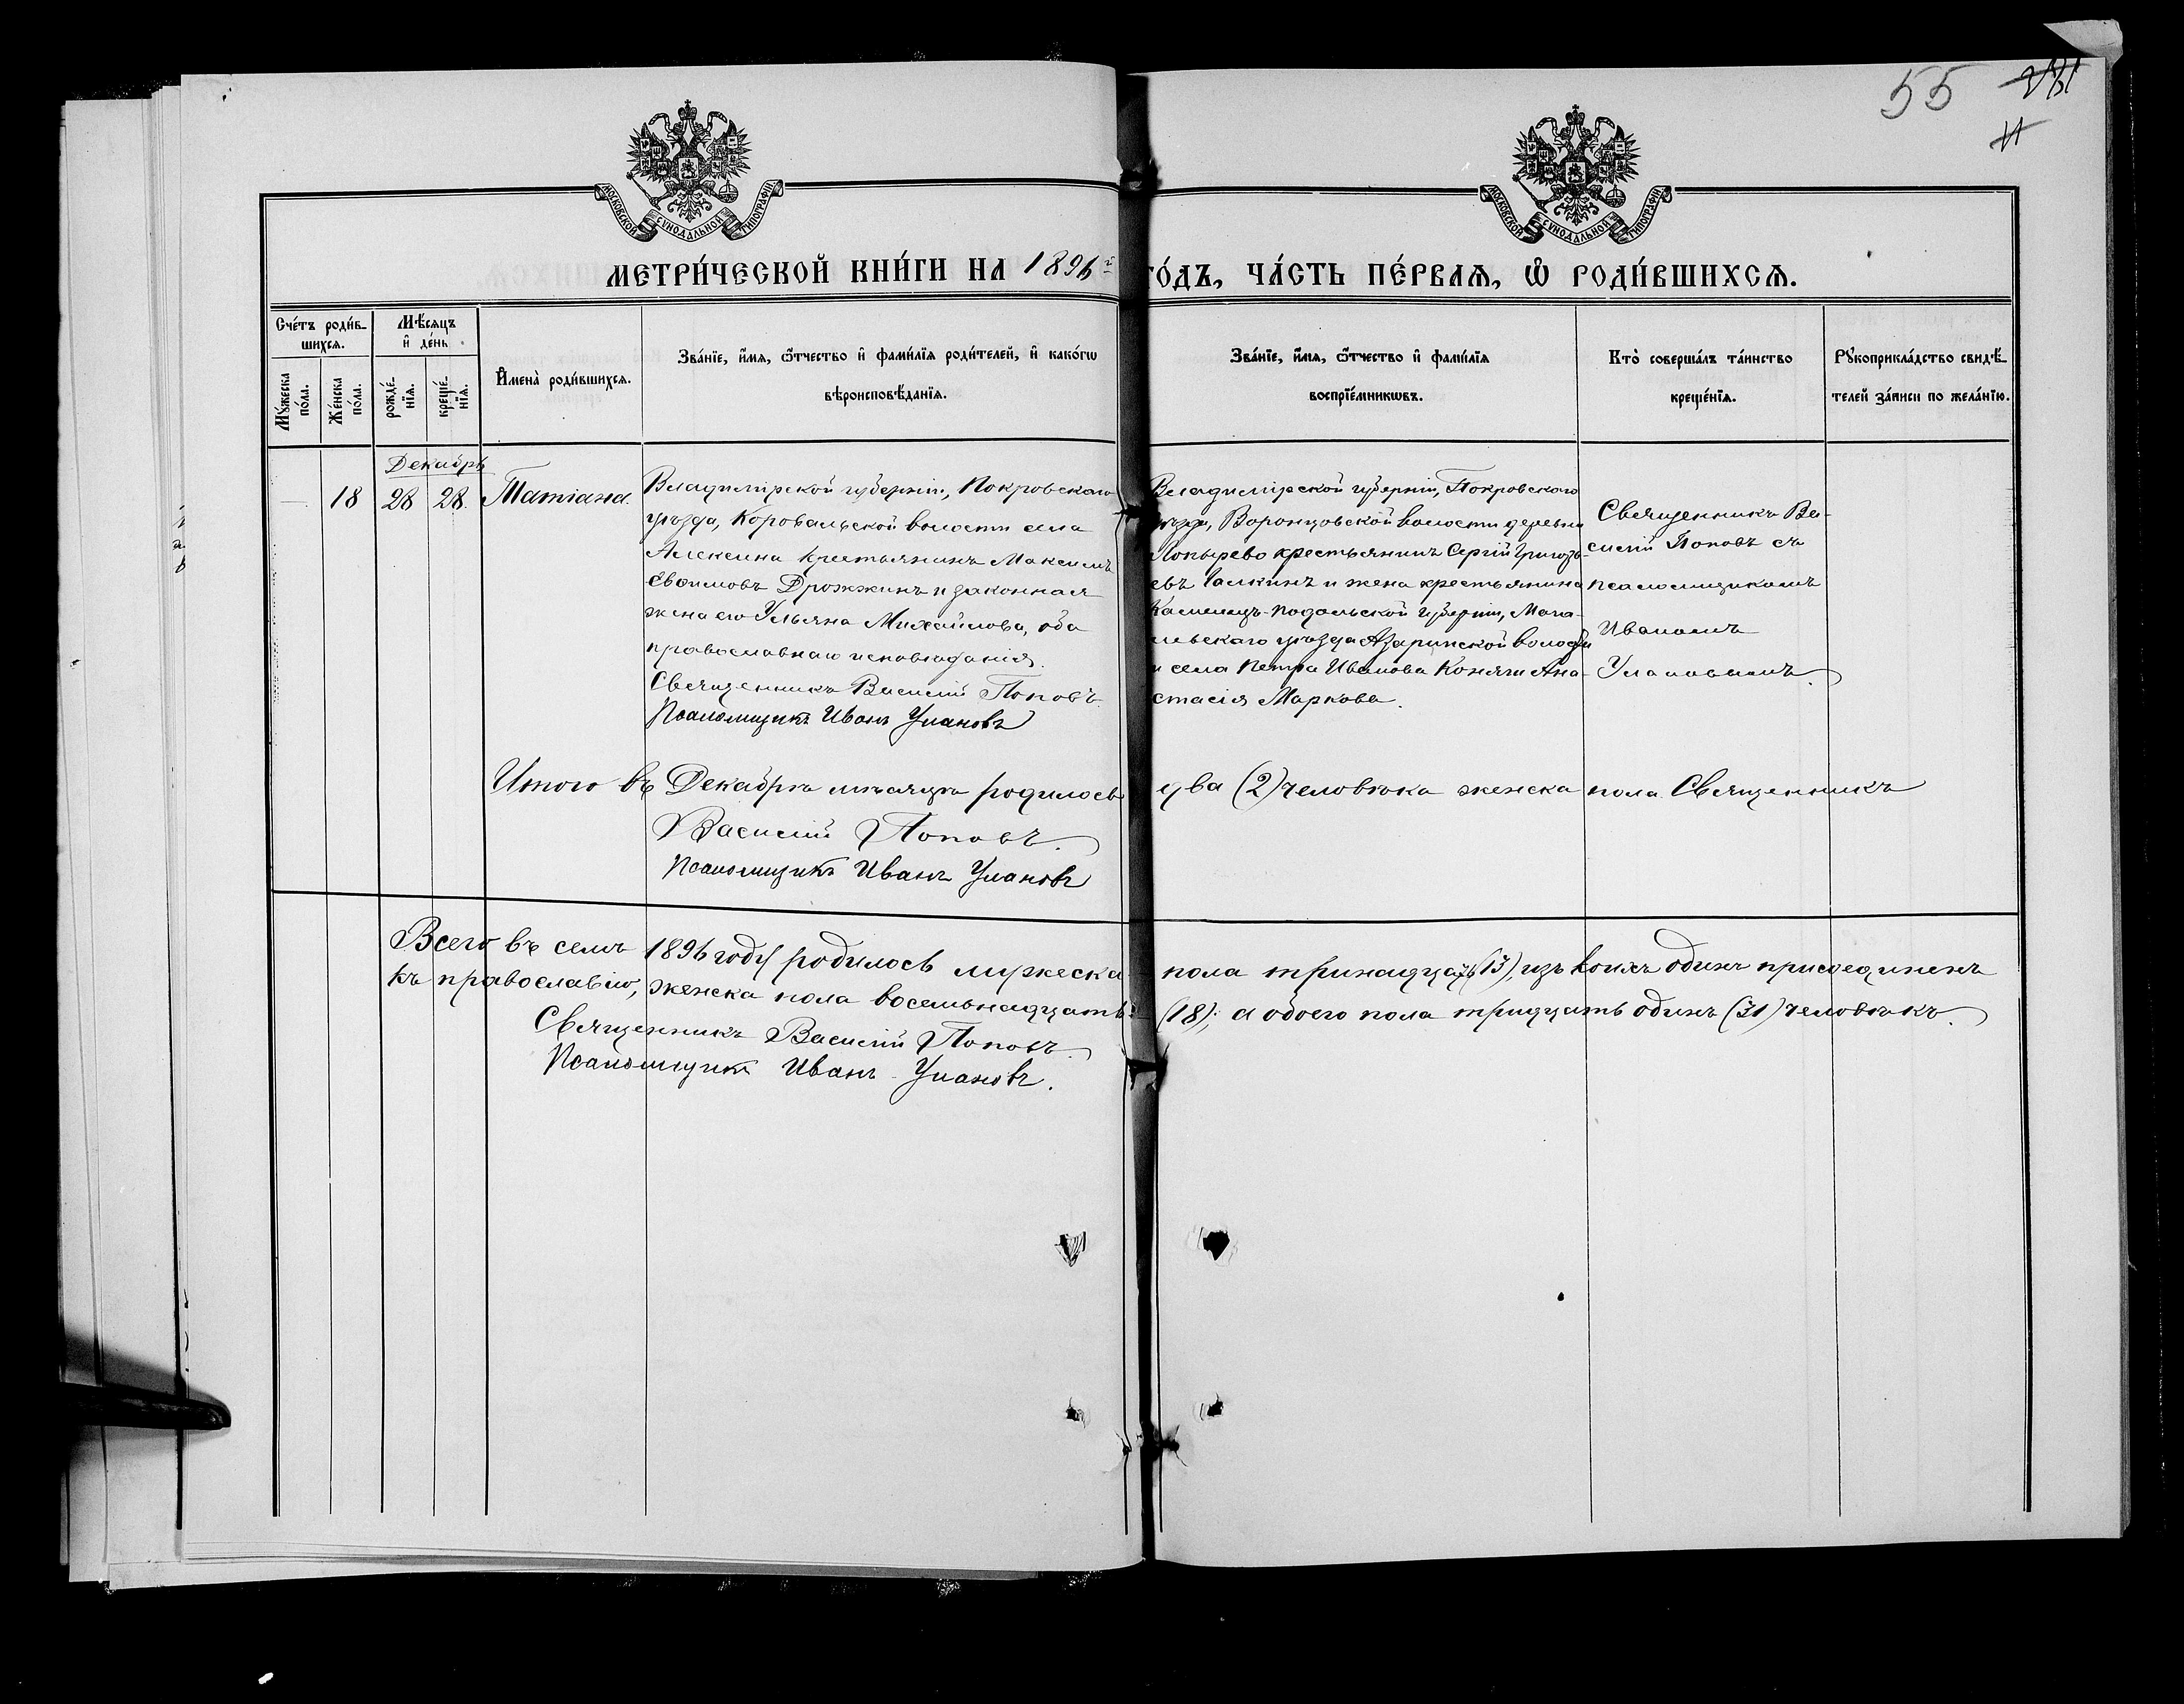 55
МОСКОВСКОЙ СѴНОДАЛЬНОЙ ТИПОГРАФІИ
МОСКОВСКОЙ СѴНОДАЛЬНОЙ ТИПОГРАФІИ
МЕТРИ́ЧЕСКОЙ КНИ́ГИ НА 1896 г.
ГО́ДЪ, ЧА́СТЬ ПЕ́РВАѦ, Ѽ РОДИ́ВШИХСѦ.
Сче́тъ роди́в-
шихсѧ.
Мꙋ́жеска по́ла.
Же́нска по́ла.
Мѣ́сѧцъ
и҆ де́нь
рожде́-
нїѧ.
креще́-
нїѧ.
И҆мена̀ роди́вшихсѧ.
Зва́нїе, и҆́мѧ, ѻ҆́тчество и҆ фами́лїѧ роди́телей, и҆ како́гѡ
вѣроисповѣ́данїѧ.
Зва́нїе, и҆́мѧ, ѻ҆́тчество и҆ фами́лїѧ
воспрїе́мникѡвъ.
Кто̀ соверша́лъ та́инство
креще́нїѧ.
Рꙋкоприкла́дство свидѣ́-
телей за́писи по жела́нїю.
Декабрь
18 28 28. Татіана.
Владимірской губерніи, Покровскаго
уѣзда, Коровальской волости села
Алексина крестьянинъ Максимъ
Евфимовъ Дрожжинъ и законная
жена его Ульяна Михайлова, оба
православнаго исповѣданія.
Священникъ Василій Поповъ.
Псаломщикъ Иванъ Улановъ
Владимірской губерніи, Покровскаго
уѣзда, Воронцовской волости деревни
Лопырево крестьянинъ Сергій Григорь-
евъ Галкинъ и жена крестьянина
Каменецъ-Подольской губерніи, Моги-
левскаго уѣзда Азаринской волости
и села Петра Иванова Коняги Ана-
стасія Маркова.
Священникъ Ва-
силій Поповъ съ
псаломщикомъ
Иваномъ
Улановымъ.
Итого въ Декабрѣ мѣсяцѣ родилось два (2) человѣка женска пола. Священникъ
Василій Поповъ.
Псаломщикъ Иванъ Улановъ
Всего въ семъ 1896 году родилось мужеска пола тринадцать (13), изъ коихъ одинъ присоединенъ
къ православію, женска пола восемьнадцать (18); а обоего пола тридцать одинъ (31) человѣкъ.
Священникъ Василій Поповъ.
Псаломщикъ Иванъ Улановъ.